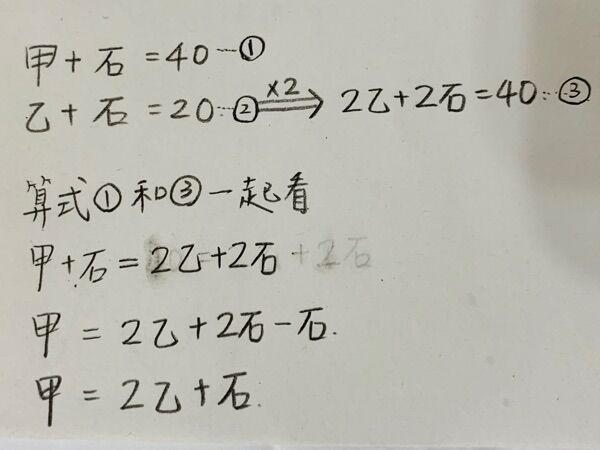 甲+石=40…①
乙+石=20…② ×2⇒ 2乙+2石=40…③
算式①和③一起看
甲+石=2乙+2石+2石
甲=2乙+2石-石.
甲=2乙+石.